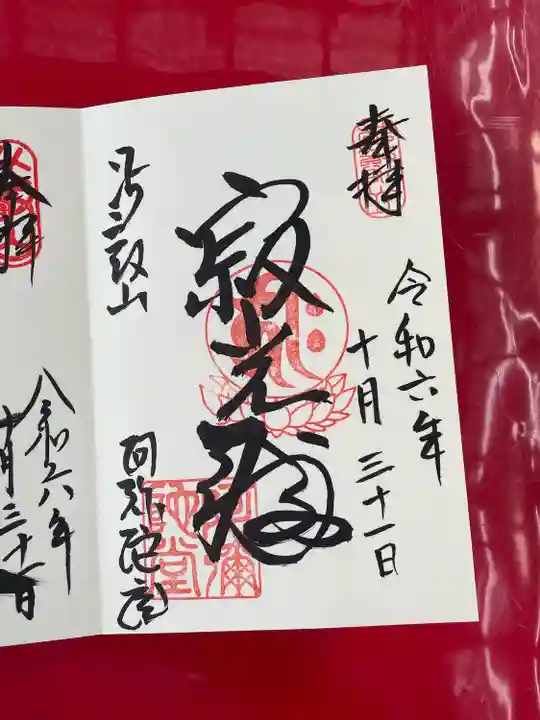 奉拝
令和六年
十月三十一日
寂光殿
阿弥陀堂
阿彌陀堂
奉拝
令和六年
十月三十一日